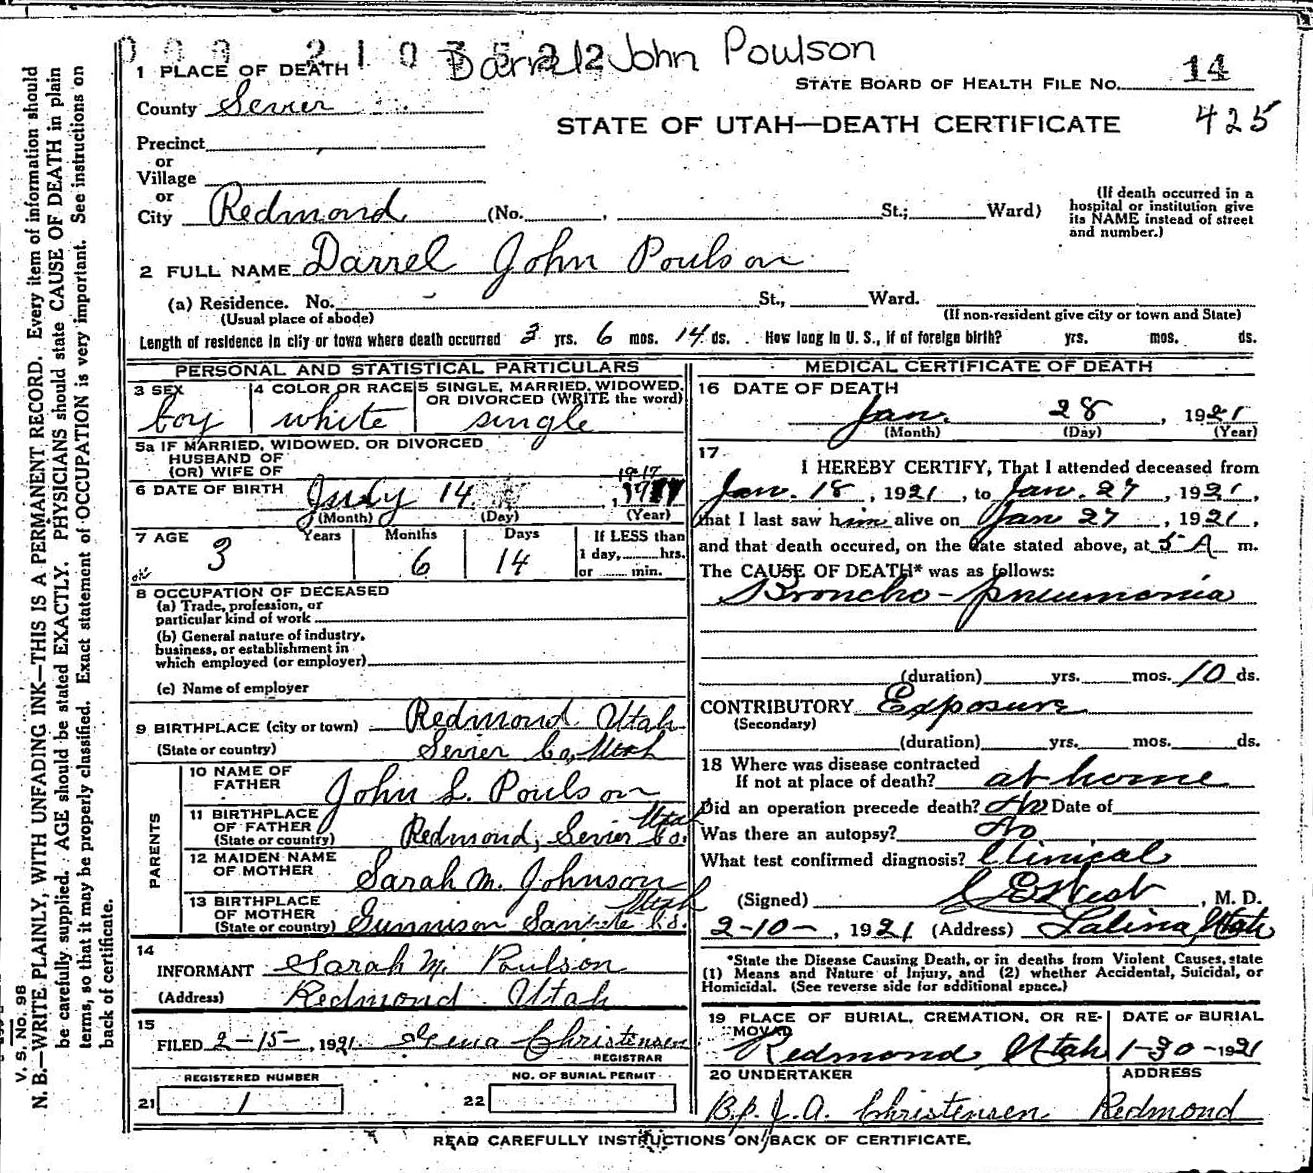 009 2107522 Darrel John Poulson
1 PLACE OF DEATH
STATE BOARD OF HEALTH FILE NO. 14
County Sevier
STATE OF UTAH—DEATH CERTIFICATE 425
Precinct
or
Village
or
City Redmond (No. , St.; Ward)
(If death occurred in a hospital or institution give its NAME instead of street and number.)
2 FULL NAME Darrel John Poulson
(a) Residence. No. St., Ward.
(Usual place of abode) (If non-resident give city or town and State)
Length of residence in city or town where death occurred 3 yrs. 6 mos. 14 ds. How long in U. S., if of foreign birth? yrs. mos. ds.
PERSONAL AND STATISTICAL PARTICULARS
3 SEX boy
4 COLOR OR RACE white
5 SINGLE, MARRIED, WIDOWED, OR DIVORCED (WRITE the word) single
5a IF MARRIED, WIDOWED, OR DIVORCED
HUSBAND OF
(OR) WIFE OF
6 DATE OF BIRTH July 14, 1917
(Month) (Day) (Year)
7 AGE 3 Years 6 Months 14 Days
If LESS than 1 day, hrs. or min.
8 OCCUPATION OF DECEASED
(a) Trade, profession, or
particular kind of work
(b) General nature of industry,
business, or establishment in
which employed (or employer)
(c) Name of employer
9 BIRTHPLACE (city or town) Redmond Utah
(State or country) Sevier Co, Utah
PARENTS
10 NAME OF FATHER John L. Poulson
11 BIRTHPLACE OF FATHER (State or country) Redmond, Sevier Co. Utah
12 MAIDEN NAME OF MOTHER Sarah M. Johnson
13 BIRTHPLACE OF MOTHER (State or country) Gunnison Sanpete Co. Utah
14
INFORMANT Sarah M. Poulson
(Address) Redmond Utah
15
FILED 2-15-, 1921. Christensen
REGISTRAR
REGISTERED NUMBER
21 1
NO. OF BURIAL PERMIT
22
MEDICAL CERTIFICATE OF DEATH
16 DATE OF DEATH
Jan. 28, 1921
(Month) (Day) (Year)
17
I HEREBY CERTIFY, That I attended deceased from
Jan. 18, 1921, to Jan. 27, 1921,
that I last saw him alive on Jan 27, 1921,
and that death occured, on the date stated above, at 5 A m.
The CAUSE OF DEATH* was as follows:
Broncho-pneumonia
(duration) yrs. mos. 10 ds.
CONTRIBUTORY Exposure
(Secondary)
(duration) yrs. mos. ds.
18 Where was disease contracted
If not at place of death? at home
Did an operation precede death? No Date of
Was there an autopsy? No
What test confirmed diagnosis? Clinical
(Signed) C E West, M. D.
2-10-, 1921 (Address) Salina, Utah
*State the Disease Causing Death, or in deaths from Violent Causes, state
(1) Means and Nature of Injury, and (2) whether Accidental, Suicidal, or
Homicidal. (See reverse side for additional space.)
19 PLACE OF BURIAL, CREMATION, OR REMOVAL Redmond Utah
DATE OF BURIAL 1-30-1921
20 UNDERTAKER J. A. Christensen
ADDRESS Redmond
READ CAREFULLY INSTRUCTIONS ON BACK OF CERTIFICATE.
V. S. No. 98
N. B.—WRITE PLAINLY, WITH UNFADING INK—THIS IS A PERMANENT RECORD. Every item of information should
be carefully supplied. AGE should be stated EXACTLY. PHYSICIANS should state CAUSE OF DEATH in plain
terms, so that it may be properly classified. Exact statement of OCCUPATION is very important. See instructions on
back of certificate.